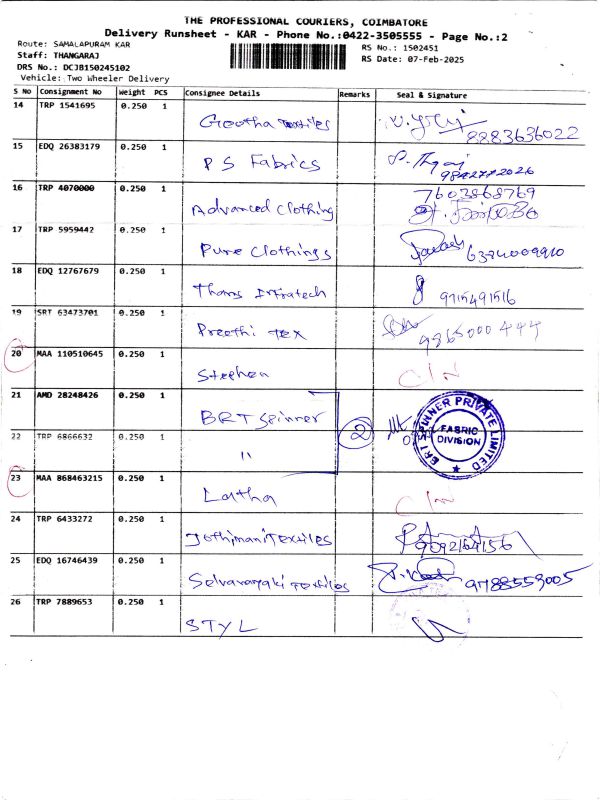 THE PROFESSIONAL COURIERS, COIMBATORE
Delivery Runsheet - KAR - Phone No.:0422-3505555 - Page No.:2
Route: SAMALAPURAM KAR
RS No.: 1502451
Staff: THANGARAJ
RS Date: 07-Feb-2025
DRS No.: DCJB150245102
Vehicle: Two Wheeler Delivery
S No Consignment No Weight PCS Consignee Details Remarks Seal & Signature
14 TRP 1541695 0.250 1
Geetha textiles 8883636022
15 EDQ 26383179 0.250 1
P S Fabrics 9842772026
16 TRP 4070000 0.250 1 7602868769
Advanced Clothing
17 TRP 5959442 0.250 1
Pure Clothings 6374009910
18 EDQ 12767679 0.250 1
Thams Infratech 9715491516
19 SRT 63473701 0.250 1
Preethi Tex 9865000444
20 MAA 110510645 0.250 1
Stephen C/N
21 AMD 28248426 0.250 1
BRT Spinner 2
BRT SPINNER PRIVATE LIMITED
FABRIC
DIVISION
22 TRP 6866632 0.250 1
"
23 MAA 868463215 0.250 1
Latha C/N
24 TRP 6433272 0.250 1
Jothimani Textiles 9092164156
25 EDQ 16746439 0.250 1
Selvanayaki Textiles 9788553005
26 TRP 7889653 0.250 1
STYL